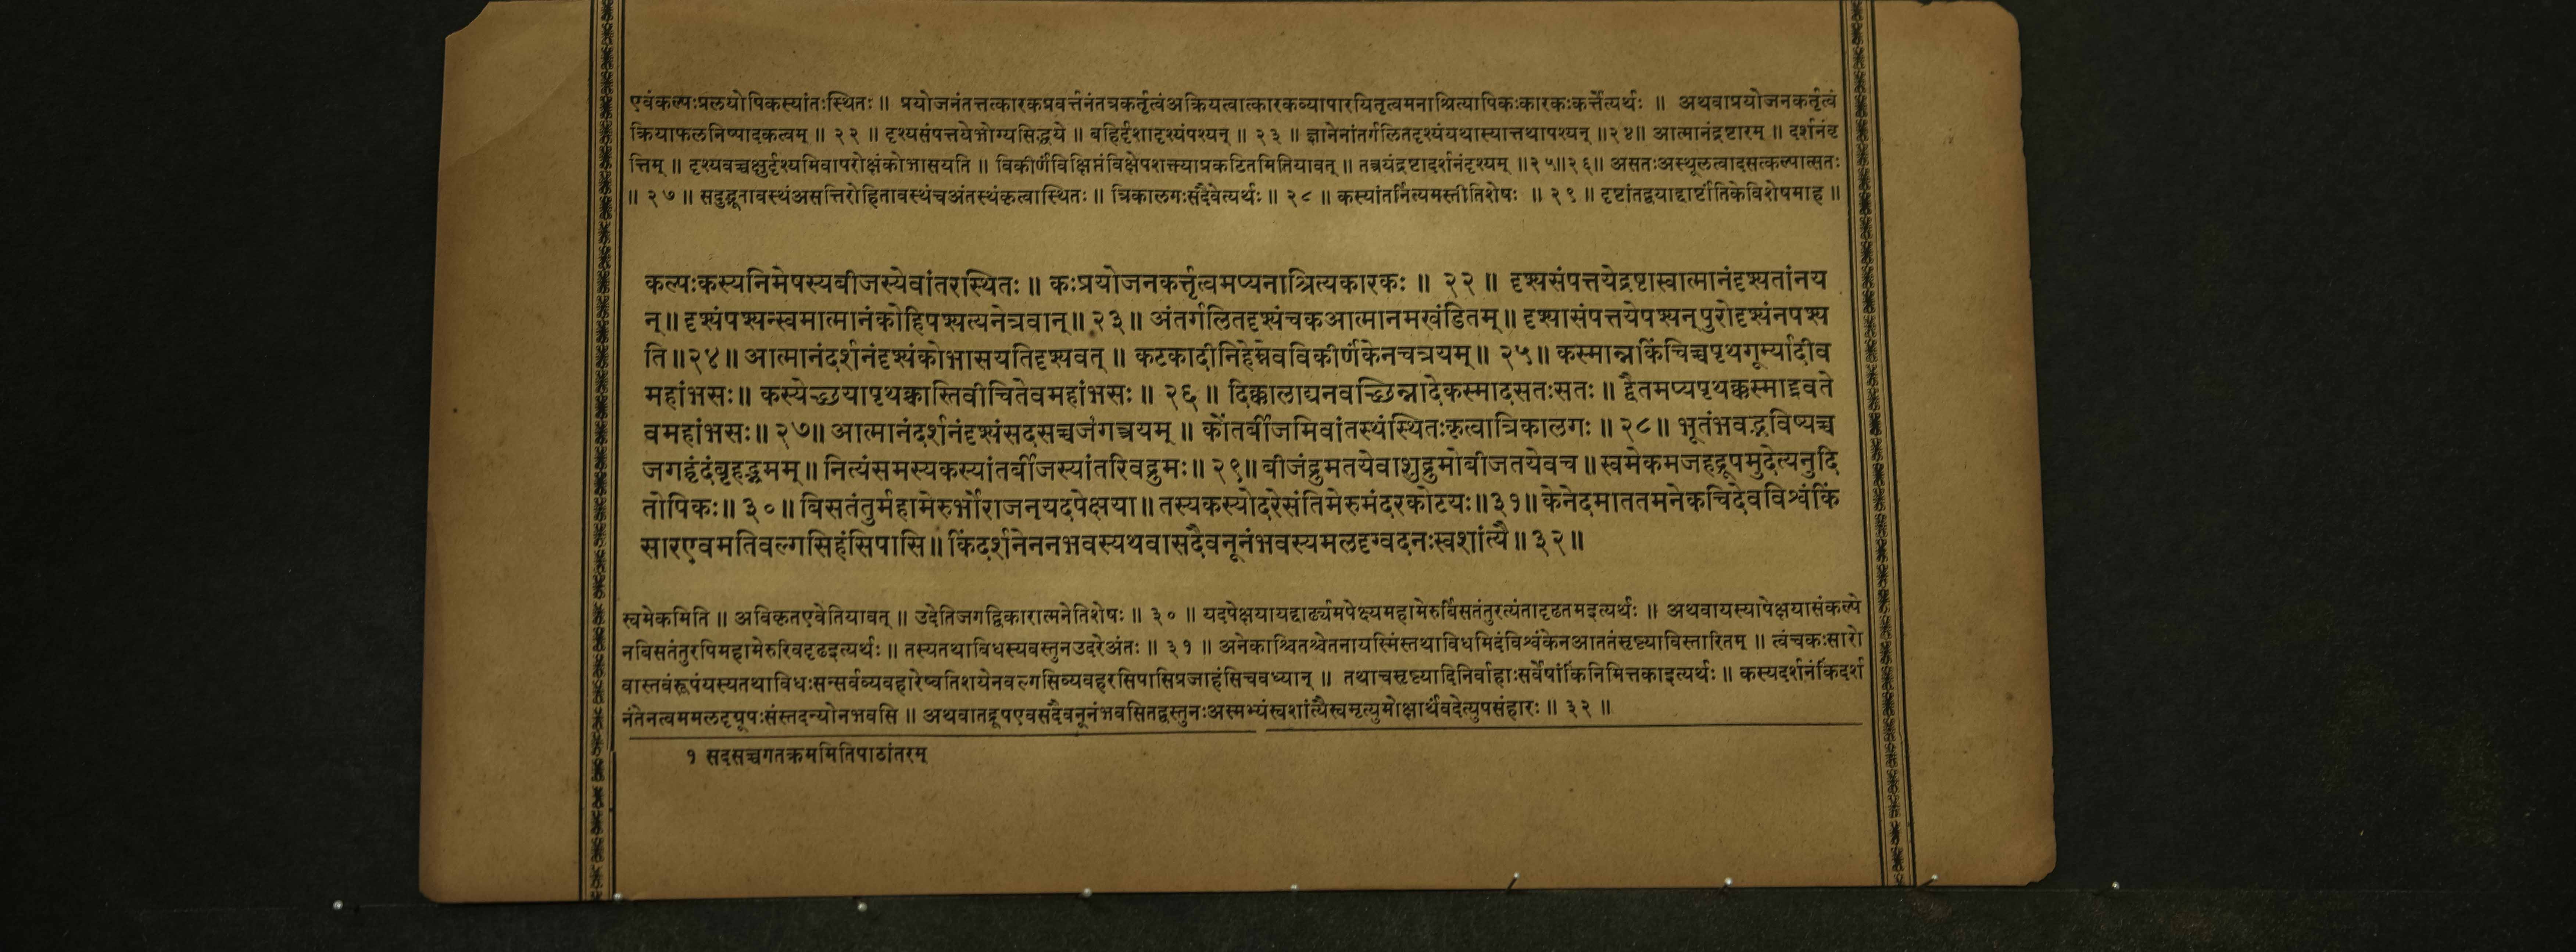 एवंकल्पःप्रलयोपिकस्यांतःस्थितः ॥ प्रयोजनंतत्तत्कारकप्रवर्त्तनंतत्रकर्तृत्वंअक्रियत्वात्कारकव्यापारयितृत्वमनाश्रित्यापिकःकारकःकर्त्तेत्यर्थः ॥ अथवाप्रयोजनकर्तृत्वं
क्रियाफलनिष्पादकत्वम् ॥ २२ ॥ दृश्यसंपत्तयेभोग्यसिद्धये ॥ बहिर्दृशादृश्यंपश्यन् ॥ २३ ॥ ज्ञानेनांतर्गलितदृश्यंयथास्यात्तथापश्यन् ॥२४॥ आत्मानंद्रष्टारम् ॥ दर्शनंवृ
त्तिम् ॥ दृश्यवच्चक्षुर्दृश्यमिवापरोक्षंकोभासयति ॥ विकीर्णंविक्षिप्तंविक्षेपशक्त्याप्रकटितमितियावत् ॥ तत्रयंद्रष्टादर्शनंदृश्यम् ॥२५॥२६॥ असतःअस्थूलत्वादसत्कल्पात्सतः
॥ २७ ॥ सदुद्भूतावस्थंअसत्तिरोहितावस्थंचअंतस्थंकृत्वास्थितः ॥ त्रिकालगःसदैवेत्यर्थः ॥ २८ ॥ कस्यांतर्नित्यमस्तीतिशेषः ॥ २९ ॥ दृष्टांतद्वयाद्दार्ष्टांतिकेविशेषमाह ॥
कल्पःकस्यनिमेषस्यबीजस्येवांतरास्थितः ॥ कःप्रयोजनकर्त्तृत्वमप्यनाश्रित्यकारकः ॥ २२ ॥ दृश्यसंपत्तयेद्रष्टास्वात्मानंदृश्यतांनय
न् ॥ दृश्यंपश्यन्स्वमात्मानंकोहिपश्यत्यनेत्रवान् ॥ २३ ॥ अंतर्गलितदृश्यंचकआत्मानमखंडितम् ॥ दृश्यासंपत्तयेपश्यन्पुरोदृश्यंनपश्य
ति ॥२४॥ आत्मानंदर्शनंदृश्यंकोभासयतिदृश्यवत् ॥ कटकादीनिहेम्नेवविकीर्णंकेनचत्रयम् ॥ २५॥ कस्मान्नकिंचिच्चपृथगूर्म्यादीव
महांभसः ॥ कस्येच्छयापृथक्कास्तिवीचितेवमहांभसः ॥ २६ ॥ दिक्कालाद्यनवच्छिन्नादेकस्मादसतःसतः ॥ द्वैतमप्यपृथक्कस्माद्द्रवते
वमहांभसः ॥ २७॥ आत्मानंदर्शनंदृश्यंसदसच्चजगत्त्रयम् ॥ कोंतर्बीजमिवांतस्थंस्थितःकृत्वात्रिकालगः ॥ २८॥ भूतंभवद्भविष्यच्च
जगद्वृंदंबृहद्भ्रमम् ॥ नित्यंसमस्यकस्यांतर्बीजस्यांतरिवद्रुमः ॥ २९॥ बीजंद्रुमतयेवाशुद्रुमोबीजतयेवच ॥ स्वमेकमजहद्रूपमुदेत्यनुदि
तोपिकः ॥ ३०॥ बिसतंतुर्महामेरुर्भोराजन्यदपेक्षया ॥ तस्यकस्योदरेसंतिमेरुमंदरकोटयः ॥३१॥ केनेदमाततमनेकचिदेवविश्वंकिं
सारएवमतिवल्गसिहंसिपासि ॥ किंदर्शनेननभवस्यथवासदैवनूनंभवस्यमलदृग्वदनःस्वशांत्यै ॥ ३२ ॥
स्वमेकमिति ॥ अविकृतएवेतियावत् ॥ उदेतिजगद्विकारात्मनेतिशेषः ॥ ३० ॥ यदपेक्षयायद्दार्ढ्यमपेक्ष्यमहामेरुर्बिसतंतुरत्यंतादृढतमइत्यर्थः ॥ अथवायस्यापेक्षयासंकल्पे
नबिसतंतुरपिमहामेरुरिवदृढइत्यर्थः ॥ तस्यतथाविधस्यवस्तुनउदरेअंतः ॥ ३१ ॥ अनेकाश्चितश्चेतनायस्मिंस्तथाविधमिदंविश्वंकेनआततंसृष्ट्याविस्तारितम् ॥ त्वंचकःसारो
वास्तवंरूपंयस्यतथाविधःसन्सर्वव्यवहारेष्वतिशयेनवल्गसिव्यवहरसिपासिप्रजाहंसिचवध्यान् ॥ तथाचसृष्ट्यादिनिर्वाहाःसर्वेषांकिंनिमित्तकाइत्यर्थः ॥ कस्यदर्शनंकिंदर्श
नंतेनत्वममलदृग्रूपःसंस्तदन्योनभवसि ॥ अथवातद्रूपएवसदैवनूनंभवसितद्वस्तुनःअस्मभ्यंस्वशांत्यैस्वमृत्युमोक्षार्थंवदेत्युपसंहारः ॥ ३२ ॥
१ सदसच्चगतक्रममितिपाठांतरम्